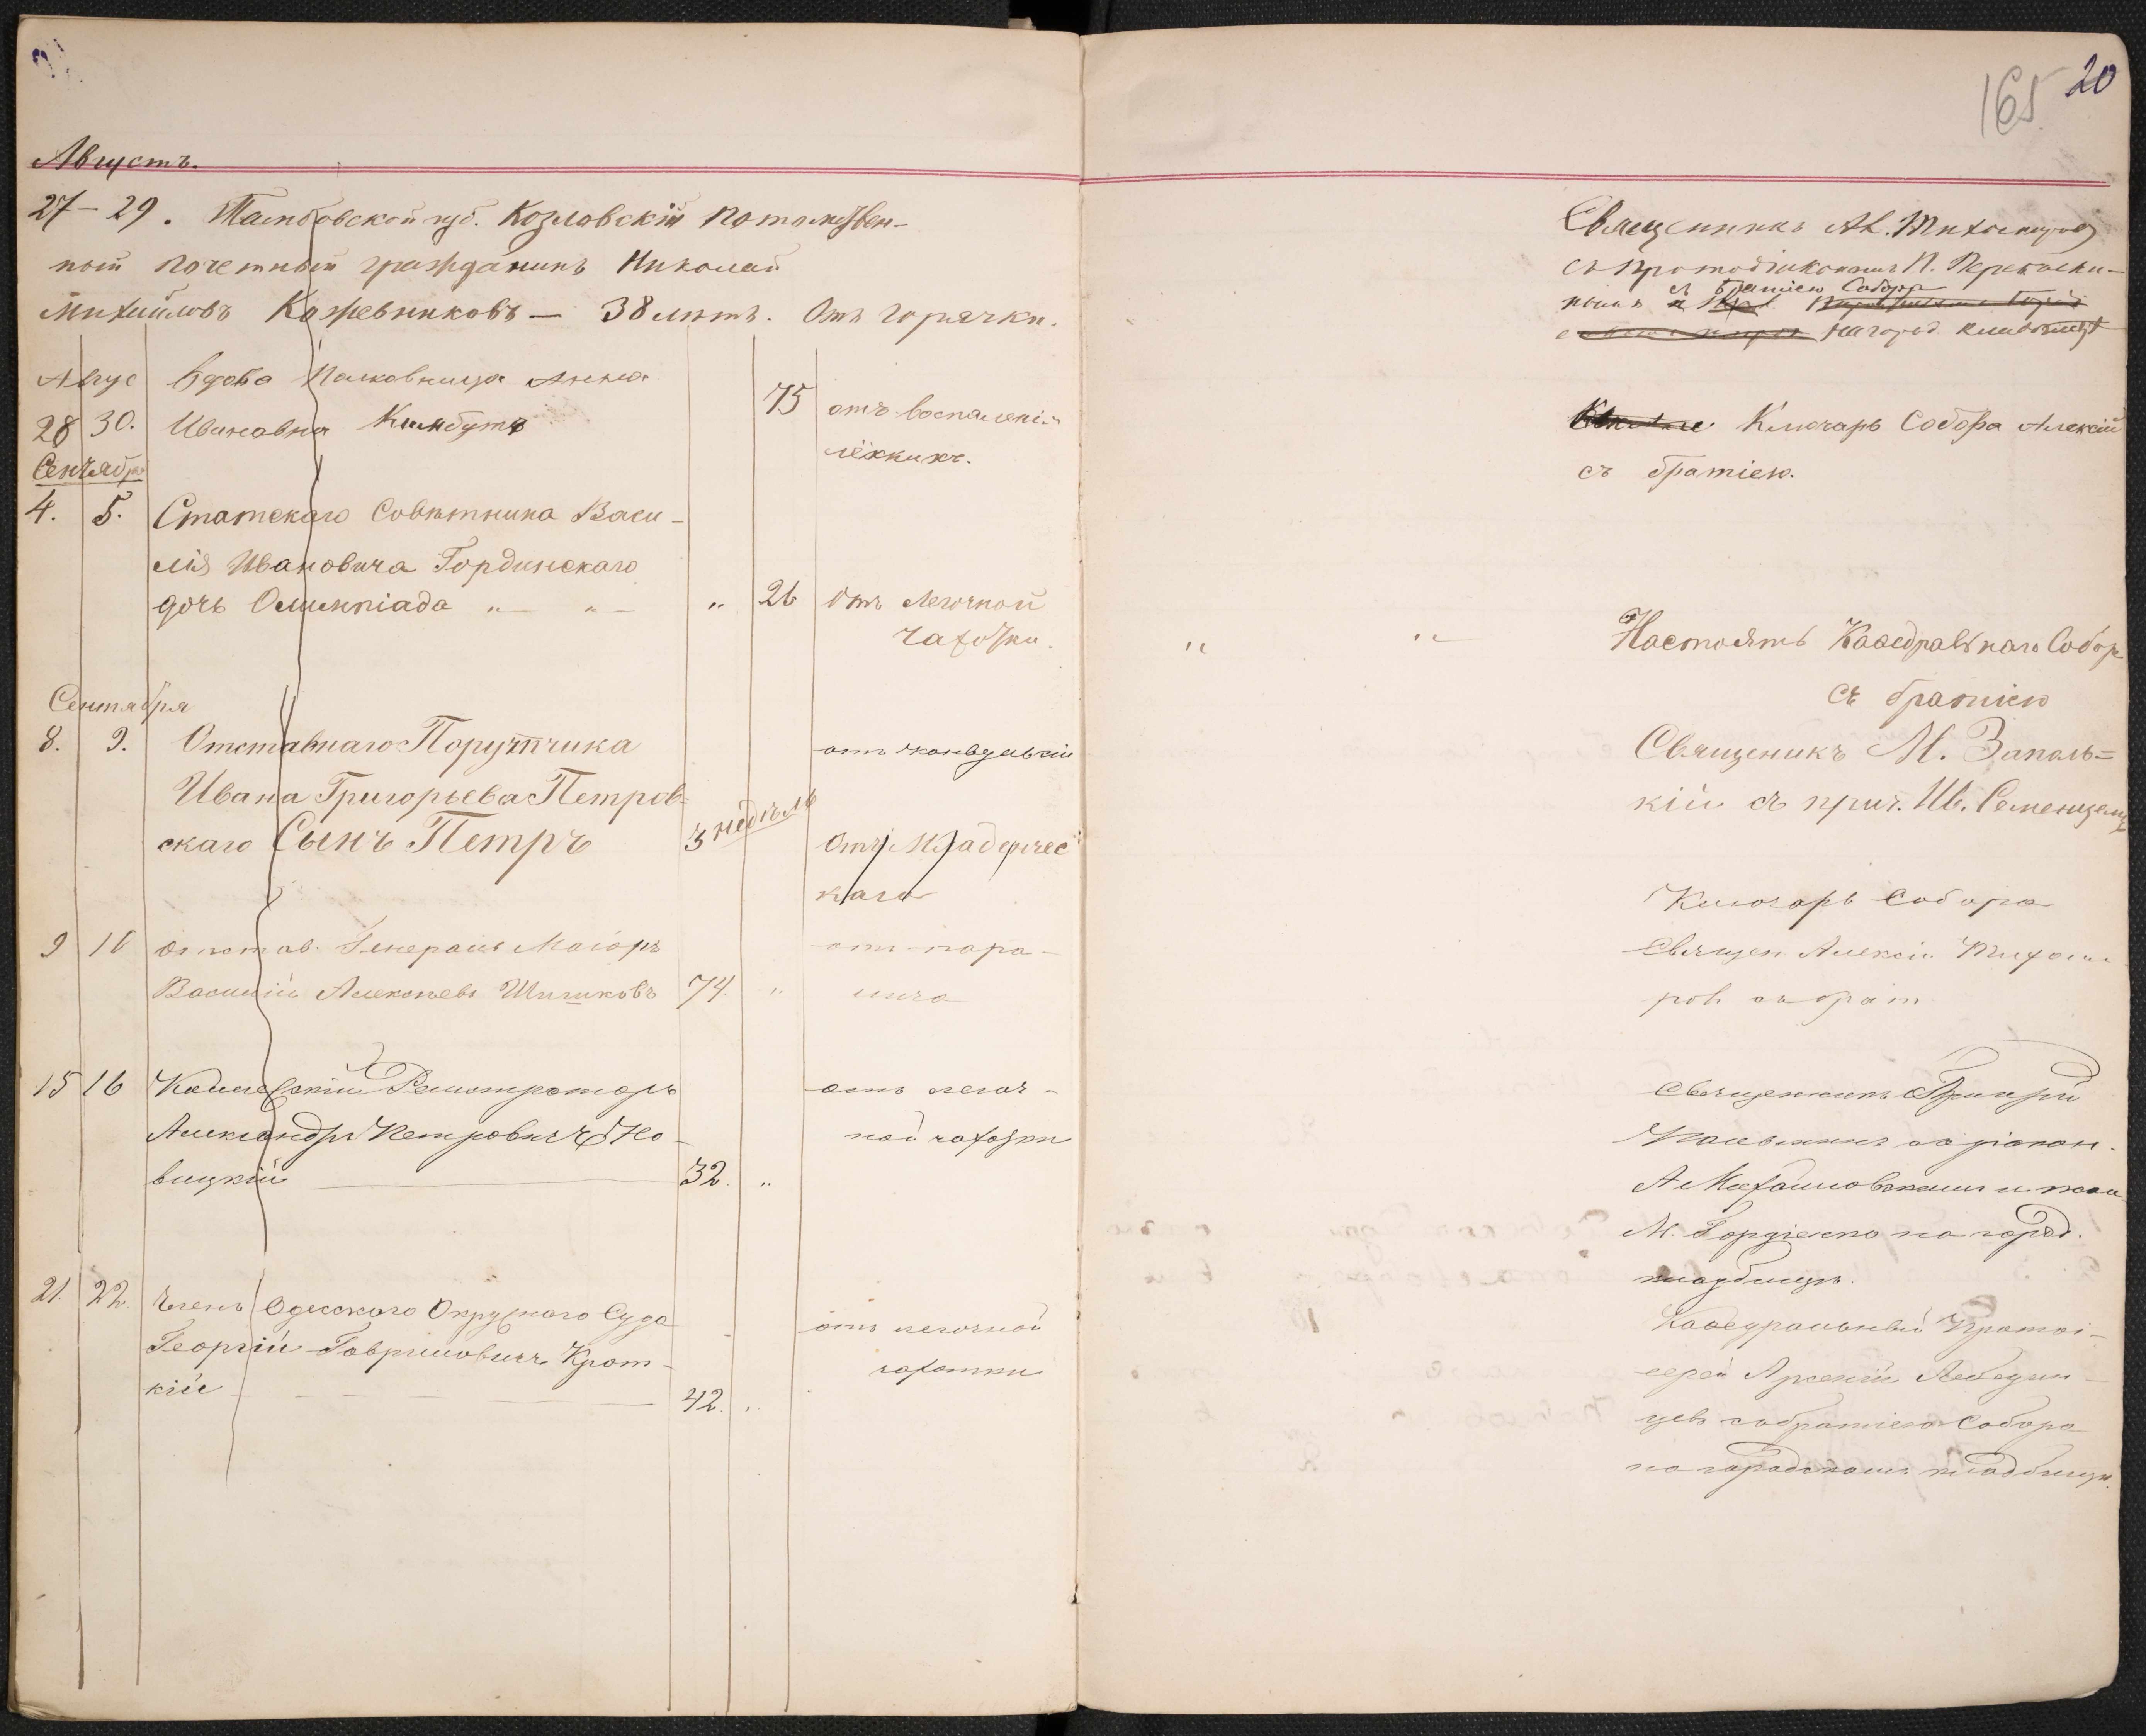 20
165
Августъ.
27–29. Тамбовской губ. Козловскій потомствен-
ный почетный гражданинъ Николай
Михайловъ Кожевниковъ — 38 лѣтъ. Отъ горячки.
Авгус
28 30. Вдова Полковница Анна
Ивановна 75 отъ воспаленія
лёгкихъ.
Сентября
4. 5. Статскаго Совѣтника Васи-
лія Ивановича Гординскаго
дочь Олимпіада „ — „ — „ 26 отъ легочной
чахотки.
Сентября
8. 9. Отставнаго Поручика
Ивана Григорьева Петров=
скаго Сынъ Петръ 3 недѣль
отъ младенчес
каго
9 10 отстав. Генералъ Маіоръ
Василій Алексѣевъ Шишковъ 74 „ отъ пара-
лича
15 16 Коллежскій Регистраторъ
Александръ Петровичъ Но-
вицкій 32. „
отъ легоч-
ной чахотки
21. 22. Членъ Одесскаго Окружнаго Суда
Георгій Гавриловичъ Крот-
кій 42. „
отъ легочной
чахотки
Священникъ Ал. Тихомировъ
съ протодіакономъ П.
съ братіею Собора
на город. кладбищѣ
Ключарь Собора Алексій
съ братіею.
„ „ Настоять Каѳедральнаго Собор
съ братіею
Священикъ М. Запаль=
кій съ прич. Ив.
Ключарь Собора
Священ. Алексій Тихоми
ров. съ брат.
Священникъ
съ діакон.
А. Михайловскимъ и
М. Гордіенко на город.
кладбищѣ.
Каѳедральный Протоі-
ерей Арсеній Лебедин-
цевъ съ братіею Собора
на городскомъ кладбищѣ.